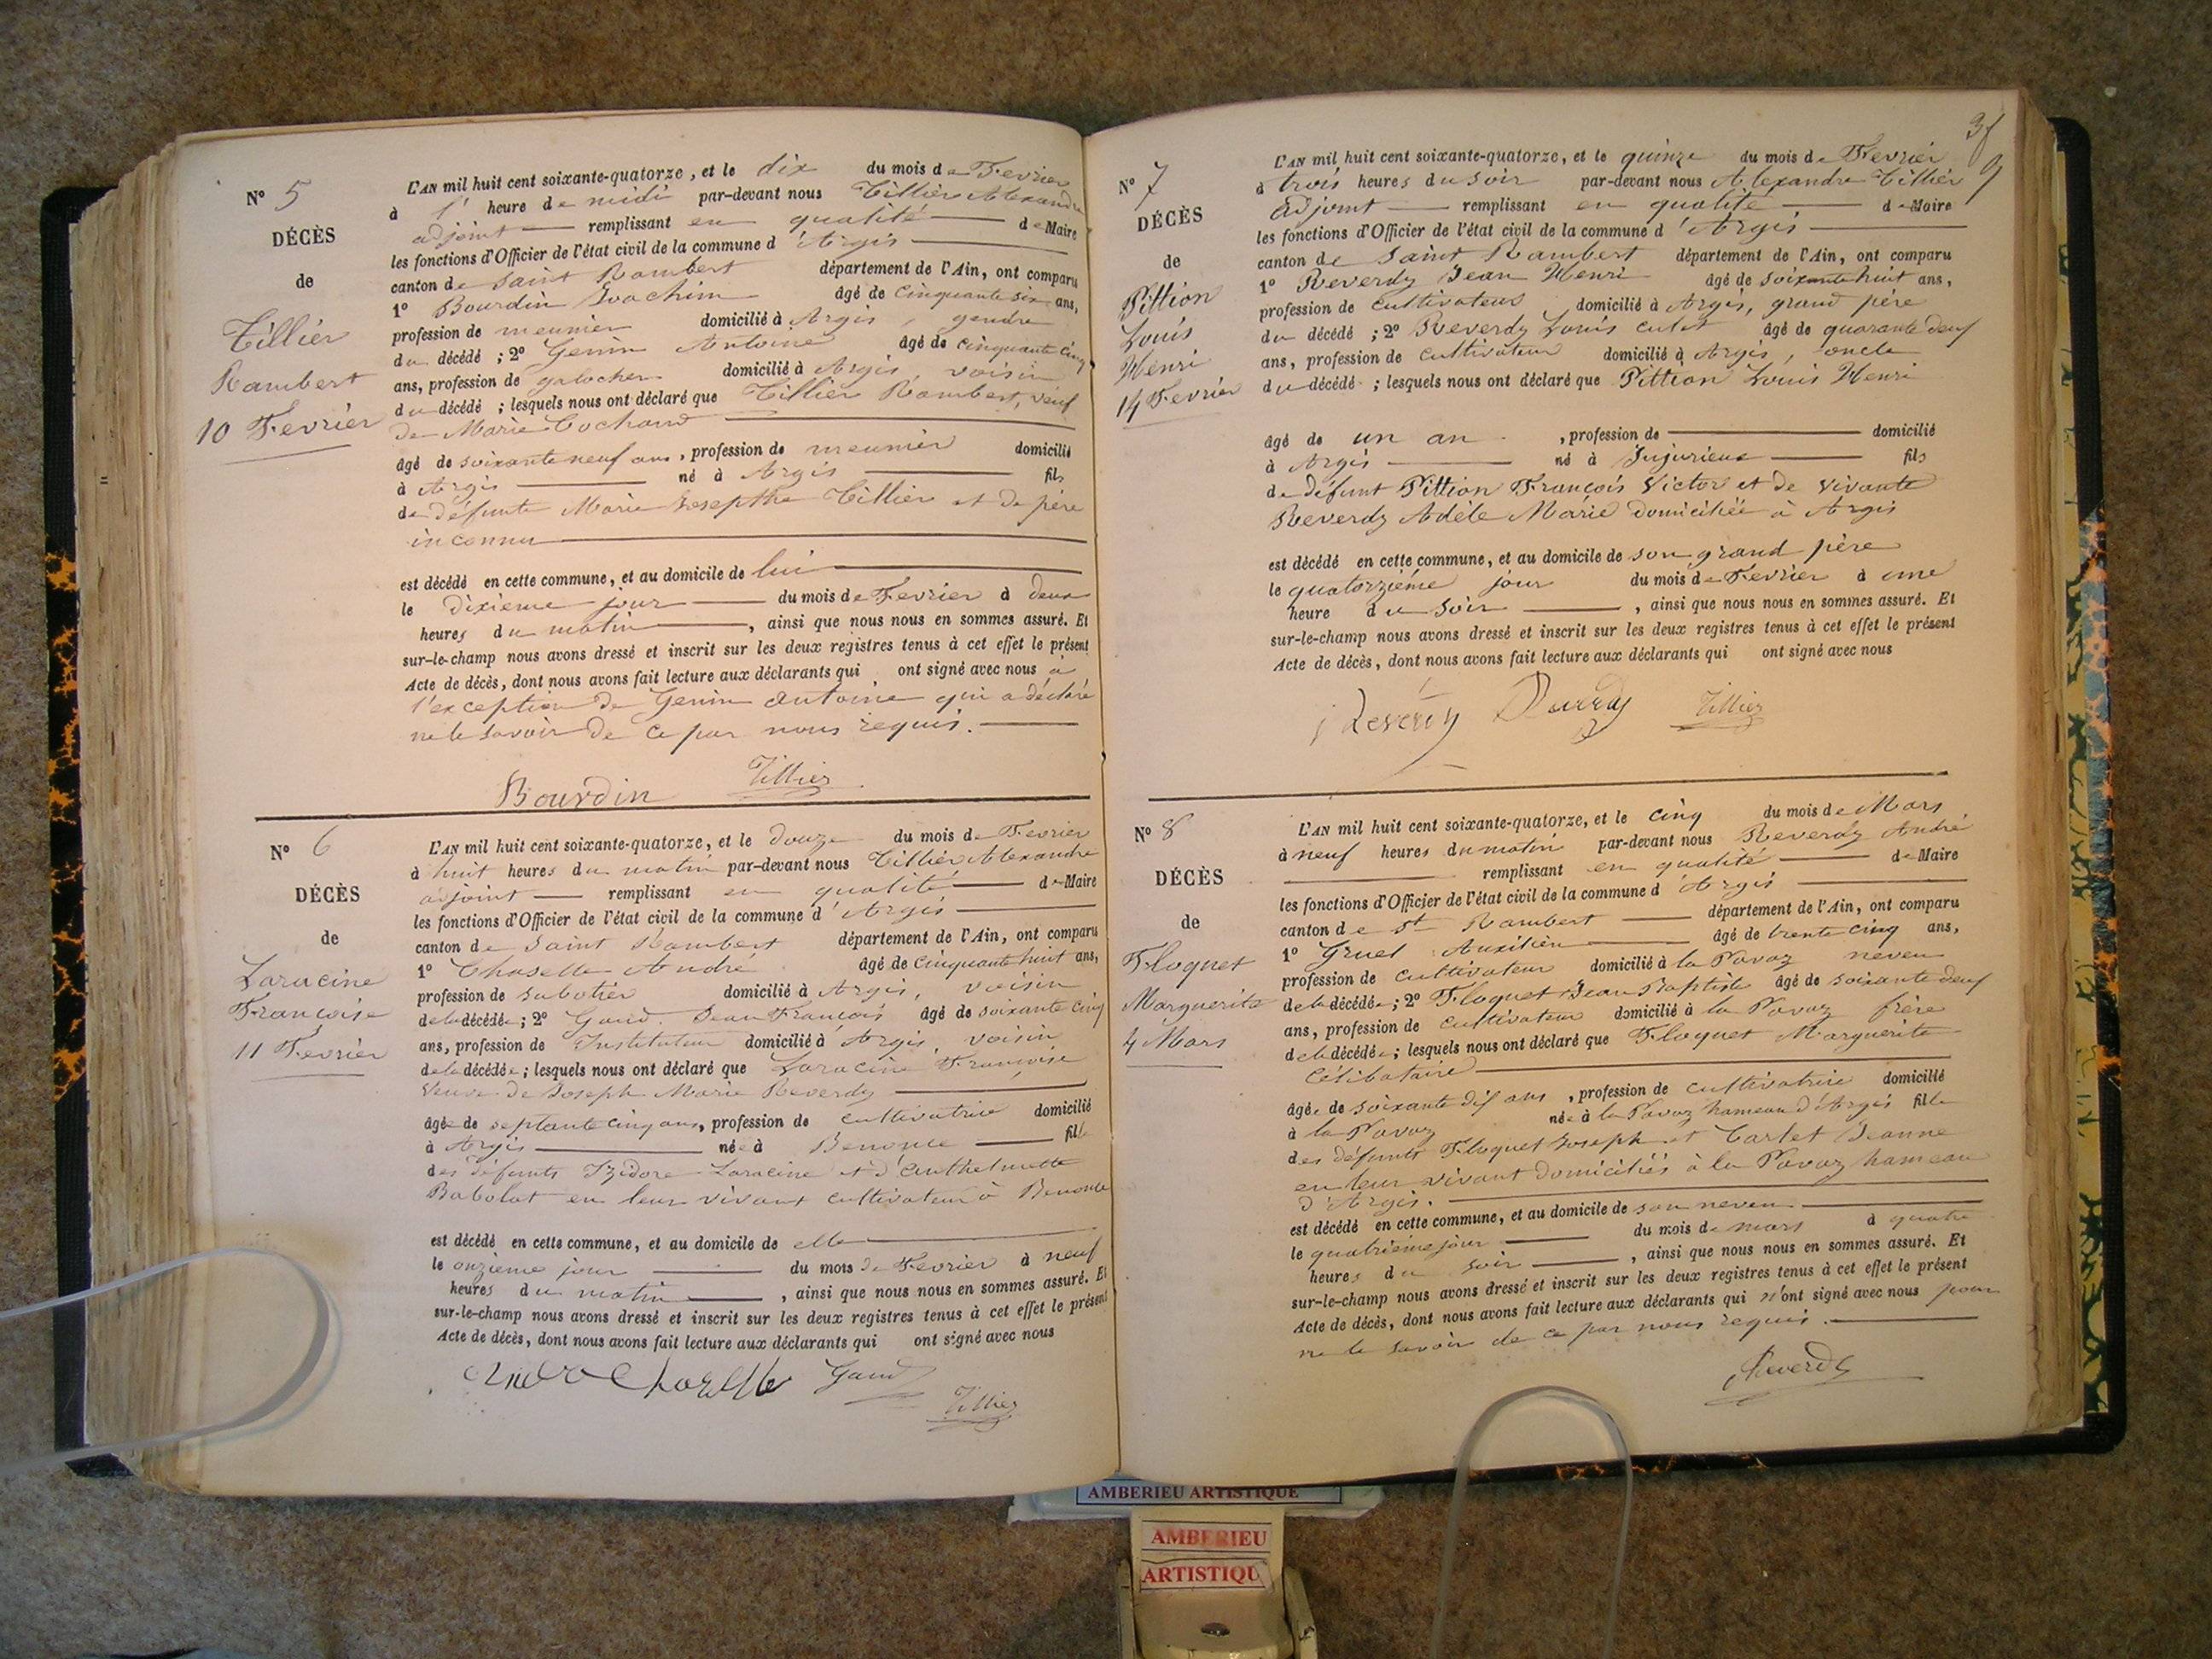 Nº 5
DÉCÈS
de
Tillier
Rambert
10 Fevrier
L'AN mil huit cent soixante-quatorze, et le dix du mois de Fevrier
à 1' heure de midi par-devant nous Tillier Alexandre
adjoint remplissant en qualité de Maire
les fonctions d'Officier de l'état civil de la commune d'Argis
canton de Saint Rambert département de l'Ain, ont comparu
1º Bourdin Joachim âgé de cinquante six ans,
profession de meunier domicilié à Argis, gendre
du décédé ; 2º Genin Antoine âgé de cinquante cinq
ans, profession de galocher domicilié à Argis, voisin
du décédé ; lesquels nous ont déclaré que Tillier Rambert, veuf
de Marie Cochand
âgé de soixante neuf ans, profession de meunier domicilié
à Argis né à Argis fils
de défunte Marie Josepthe Tillier et de père
inconnu
est décédé en cette commune, et au domicile de lui
le dixieme jour du mois de Fevrier à deux
heures du matin, ainsi que nous nous en sommes assuré. Et
sur-le-champ nous avons dressé et inscrit sur les deux registres tenus à cet effet le présent
Acte de décès, dont nous avons fait lecture aux déclarants qui ont signé avec nous à
l'exception de Genin Antoine qui a déclaré
ne le savoir de ce par nous requis.
Bourdin Tillier
Nº 6
DÉCÈS
de
Laracine
Françoise
11 Fevrier
L'AN mil huit cent soixante-quatorze, et le douze du mois de Fevrier
à huit heures du matin par-devant nous Tillier Alexandre
adjoint remplissant en qualité de Maire
les fonctions d'Officier de l'état civil de la commune d'Argis
canton de Saint Rambert département de l'Ain, ont comparu
1º Choselle André âgé de cinquante huit ans,
profession de sabotier domicilié à Argis, voisin
de la décédée ; 2º Gaud Jean François âgé de soixante cinq
ans, profession de Instituteur domicilié à Argis, voisin
de la décédée ; lesquels nous ont déclaré que Laracine Françoise
veuve de Joseph Marie Reverdy
âgée de septante cinq ans, profession de cultivatrice domicilié
à Argis née à Benonce fille
des défunts Izidore Laracine et d'Anthelmette
Babolat en leur vivant cultivateur à Benonce
est décédé en cette commune, et au domicile de elle
le onzieme jour du mois de Fevrier à neuf
heures du matin, ainsi que nous nous en sommes assuré. Et
sur-le-champ nous avons dressé et inscrit sur les deux registres tenus à cet effet le présent
Acte de décès, dont nous avons fait lecture aux déclarants qui ont signé avec nous
Gaud
Tillier
Nº 7
DÉCÈS
de
Pittion
Louis
Henri
14 Fevrier
L'AN mil huit cent soixante-quatorze, et le quinze du mois de Fevrier
à trois heures du soir par-devant nous Alexandre Tillier
adjoint remplissant en qualité de Maire
les fonctions d'Officier de l'état civil de la commune d'Argis
canton de Saint Rambert département de l'Ain, ont comparu
1º Reverdy Jean Henri âgé de soixante huit ans,
profession de cultivateur domicilié à Argis, grand père
du décédé ; 2º Reverdy Louis âgé de quarante deux
ans, profession de cultivateur domicilié à Argis, oncle
du décédé ; lesquels nous ont déclaré que Pittion Louis Henri
âgé de un an, profession de domicilié
à Argis né à Jujurieux fils
de défunt Pittion François Victor et de vivante
Reverdy Adèle Marie domiciliée à Argis
est décédé en cette commune, et au domicile de son grand père
le quatorzième jour du mois de Fevrier à une
heure du soir, ainsi que nous nous en sommes assuré. Et
sur-le-champ nous avons dressé et inscrit sur les deux registres tenus à cet effet le présent
Acte de décès, dont nous avons fait lecture aux déclarants qui ont signé avec nous
Tillier
Nº 8
DÉCÈS
de
Floquet
Marguerite
4 Mars
L'AN mil huit cent soixante-quatorze, et le cinq du mois de Mars
à neuf heures du matin par-devant nous Reverdy André
remplissant en qualité de Maire
les fonctions d'Officier de l'état civil de la commune d'Argis
canton de St Rambert département de l'Ain, ont comparu
1º Gruel Auxilien âgé de trente cinq ans,
profession de cultivateur domicilié à la Pavaz neveu
de la décédée ; 2º Floquet Jean Baptiste âgé de soixante deux
ans, profession de cultivateur domicilié à la Pavaz frère
de la décédée ; lesquels nous ont déclaré que Floquet Marguerite
célibataire
âgée de soixante dix ans, profession de cultivatrice domicilié
à la Pavaz née à la Pavaz hameau d'Argis fille
des défunts Floquet Joseph et Carlet Jeanne
en leur vivant domiciliés à la Pavaz hameau
d'Argis.
est décédé en cette commune, et au domicile de son neveu
le quatrième jour du mois de mars à quatre
heures du soir, ainsi que nous nous en sommes assuré. Et
sur-le-champ nous avons dressé et inscrit sur les deux registres tenus à cet effet le présent
Acte de décès, dont nous avons fait lecture aux déclarants qui n'ont signé avec nous pour
ne le savoir de ce par nous requis.
Reverdy
AMBERIEU ARTISTIQUE
AMBERIEU
ARTISTIQU